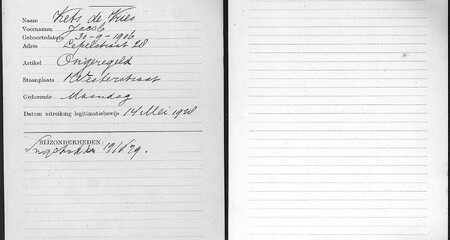 Naam Kets de Vries
Voornamen Jacob
Geboortedatum 30-9-1906
Adres Lepelstraat 28
Artikel Ongeregeld
Staanplaats Westerstraat
Gedurende Maandag
Datum uitreiking legitimatiebewijs 14 Mei 1928
BIJZONDERHEDEN:
Ingetrokken